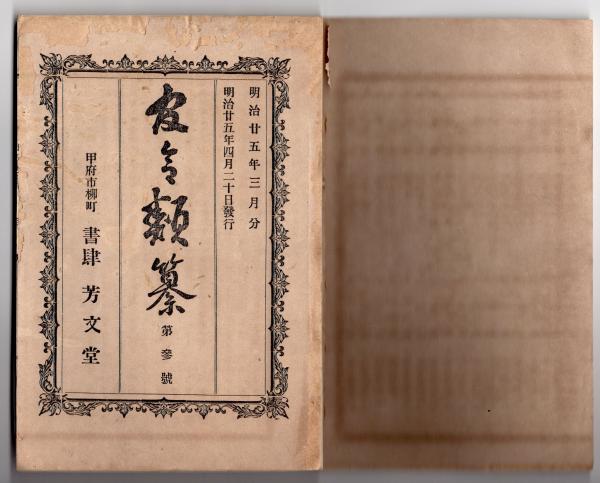 明治廿五年三月分
明治廿五年四月二十日發行
官令類纂 第參號
甲府市柳町 書肆 芳文堂